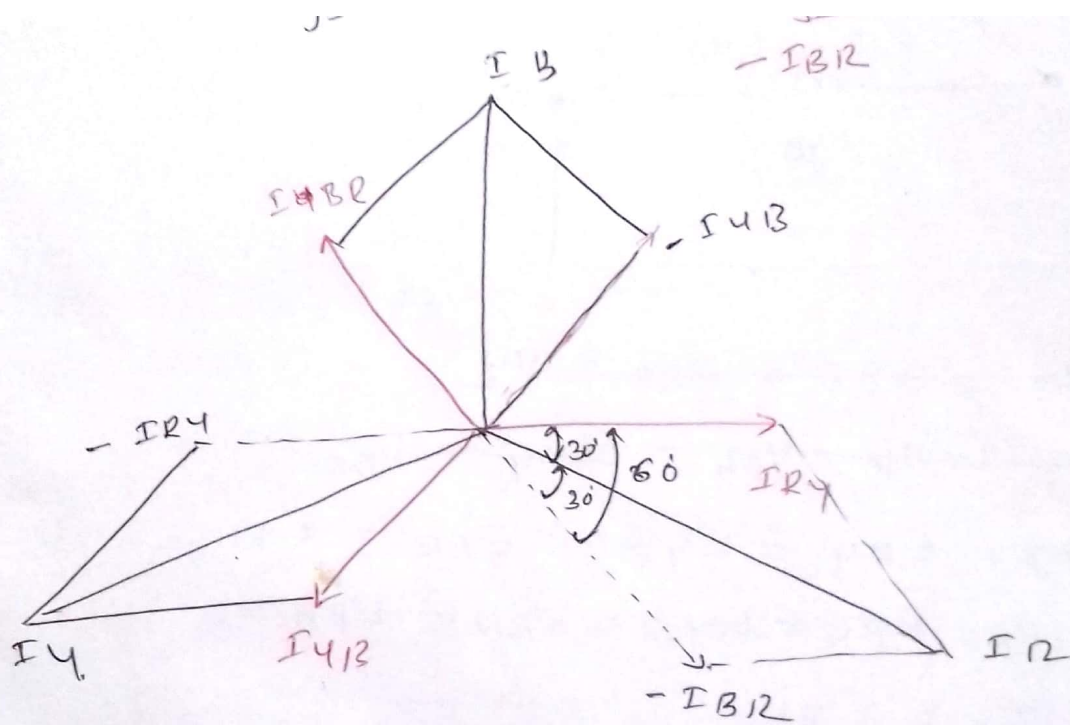 - IBR
I B
I BR
- IYB
- IRY
30°
60°
30°
IRY
IY
IYB
- IBR
IR